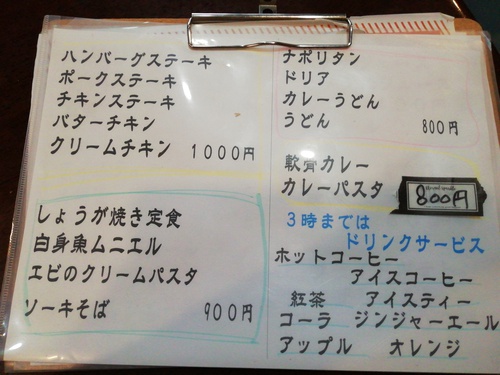 ハンバーグステーキ
ポークステーキ
チキンステーキ
バターチキン
クリームチキン 1000円
しょうが焼き定食
白身東ムニエル
エビのクリームパスタ
ソーキそば 900円
ナポリタン
ドリア
カレーうどん
うどん 800円
軟骨カレー
カレーパスタ 800円
3時までは
ドリンクサービス
ホットコーヒー
アイスコーヒー
紅茶 アイスティー
コーラ ジンジャーエール
アップル オレンジ